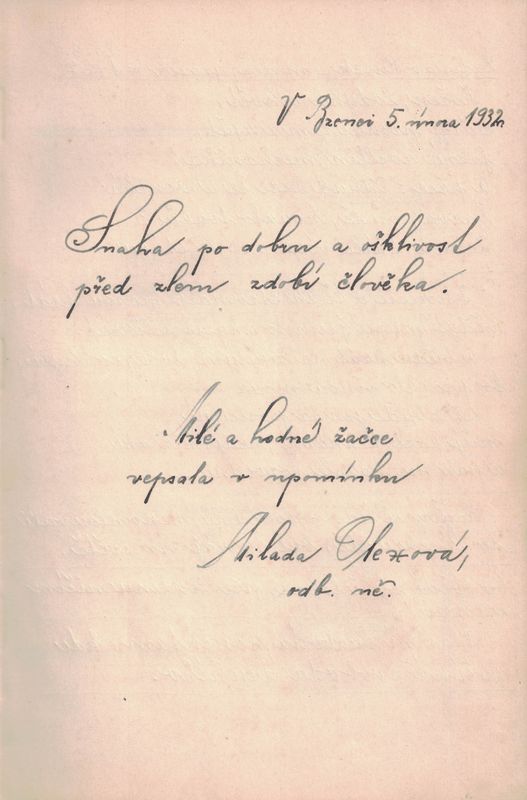 V Bzenci 5. února 1932
Snaha po dobru a ošklivost
před zlem zdobí člověka.
Milé a hodné žačce
vepsala v upomínku
Milada Olexová,
odb. uč.